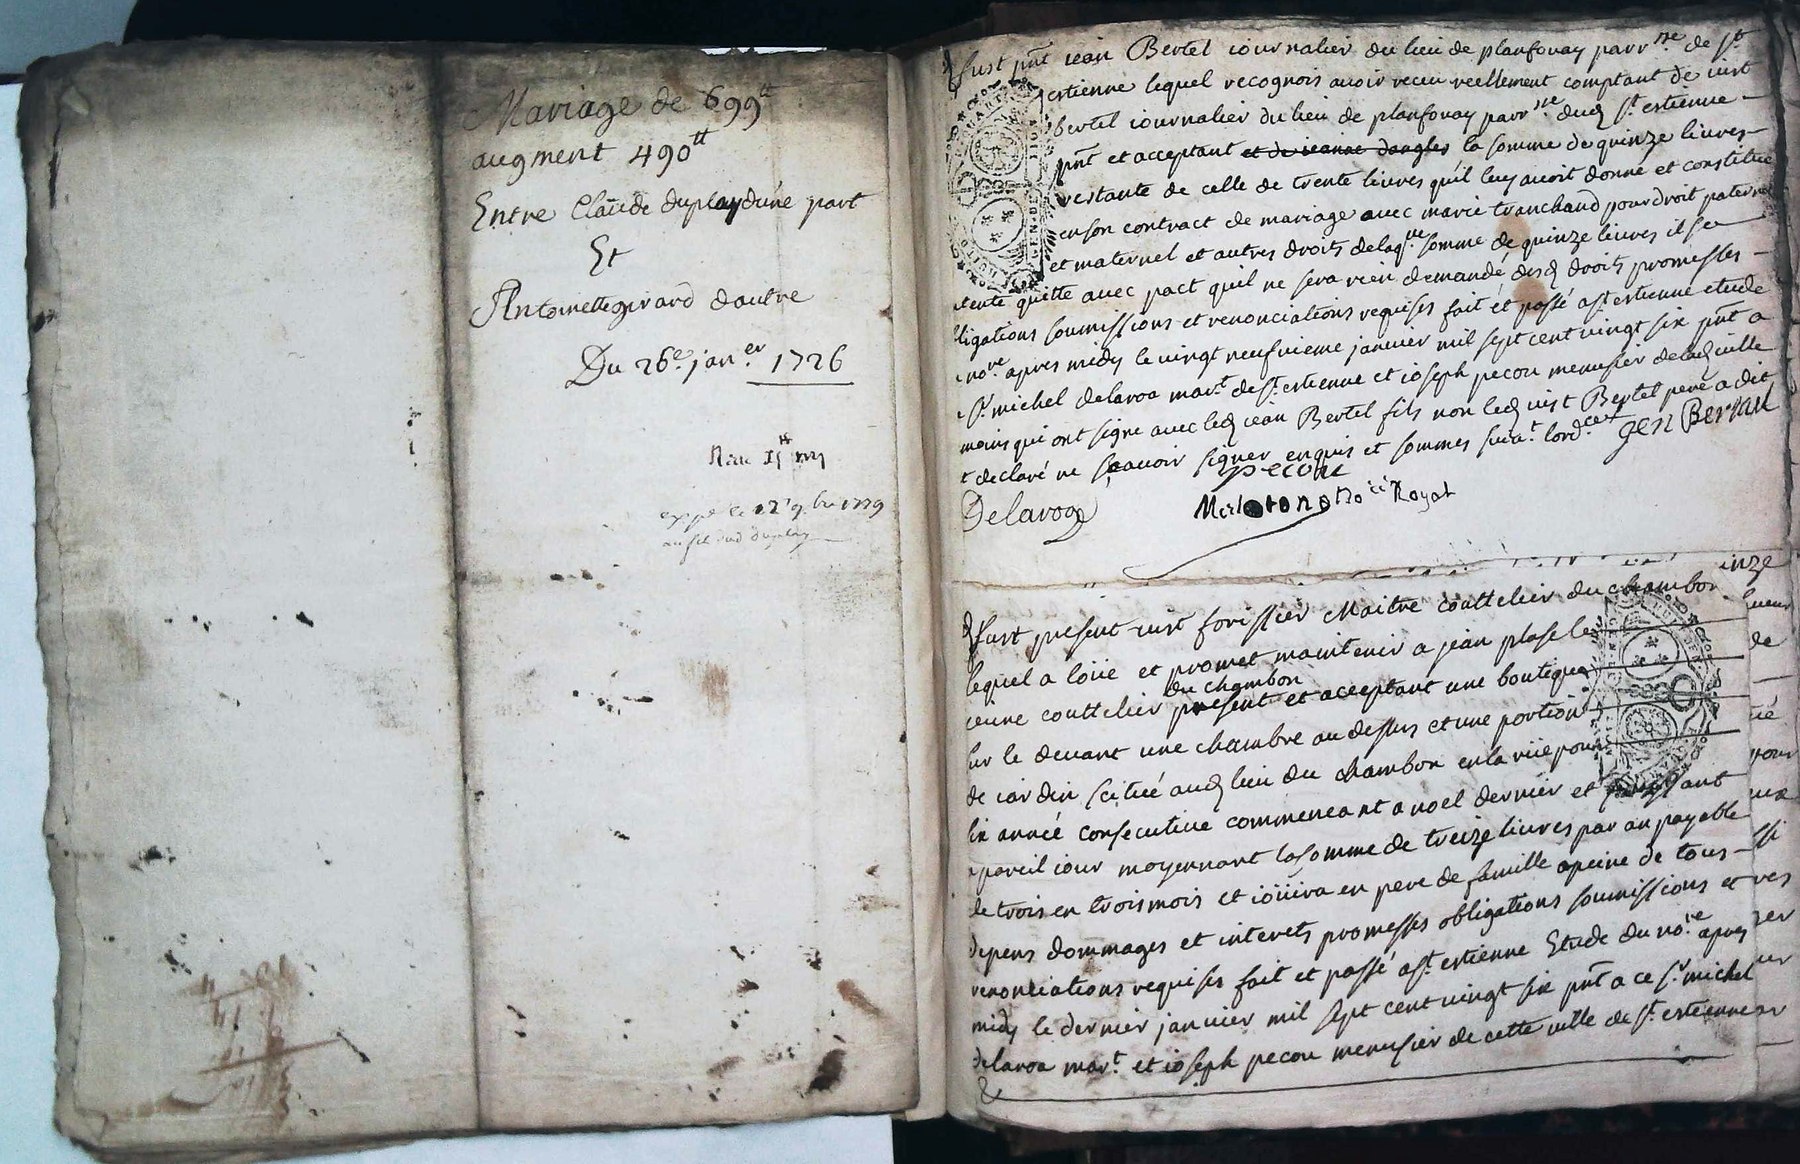 Mariage de 699tt
augment 490tt
Entre Claude duplay d'une part
Et
Antoinette girard d'autre
Du 26e. janer 1726
expé le 12 9bre 1779
Fust pnt iean Bertel iournalier du lieu de planfouay parrsse de St
estienne lequel recognois auoir receu reellement comptant de iust
bertel iournalier du lieu de planfouay parrsse dud St estienne
pnt et acceptant et de ieanne dangles la somme de quinze liures
restante de celle de trente liures quil luy auoit donné et constitué
en son contract de mariage auec marie tranchand pour droit paternel
et maternel et autres droits de laqlle somme de quinze liures il se
tente quitte auec pact quil ne sera rien demandé desd droits promesses
ligations soumissions et renonciations requises fait et passé a St estienne etude
nore apres midy le vingt neufuieme januier mil sept cent vingt six pnt a
Sr michel delaroa mart de St estienne et ioseph pecou menusier de lad ville
moins qui ont signe auec led iean Bertel fils non led iust Bertel pere a dit
t declaré ne scauoir signer enquis et sommes suiut lordce
gen Bertail
pecou
Delaroa
Royal
Fust present iust forissier Maitre couttelier du chambon
lequel a loüe et promet maintenir a jean plase le
ieune couttelier du chambon present et acceptant une boutique
sur le deuant une chambre au dessus et une portion
de iardin scitué aud lieu du chambon en la rüe pour
six année consecutiue commencant a noel dernier et finissant
a pareil iour moyennant la somme de treize liures par an payable
de trois en trois mois et ioüira en pere de famille a peine de tous
depens dommages et interets promesses obligations soumissions et
renonciations requises fait et passé a St estienne Etude du nore apres
midy le dernier januier mil sept cent vingt six pnt a ce Sr michel
delaroa mart et ioseph pecou menusier de cette ville de St estienne